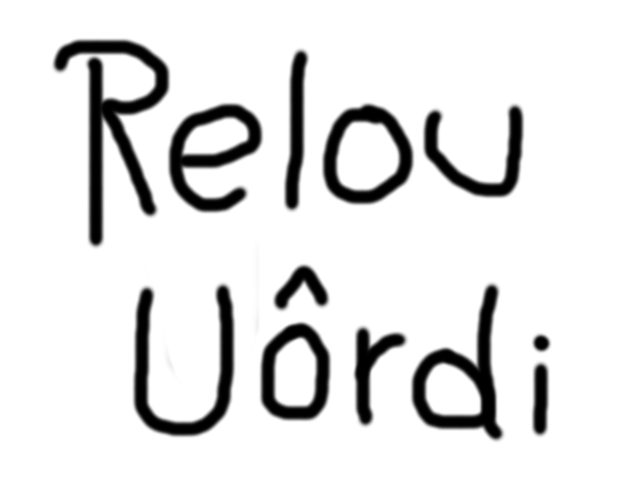 Relou
Uôrdi